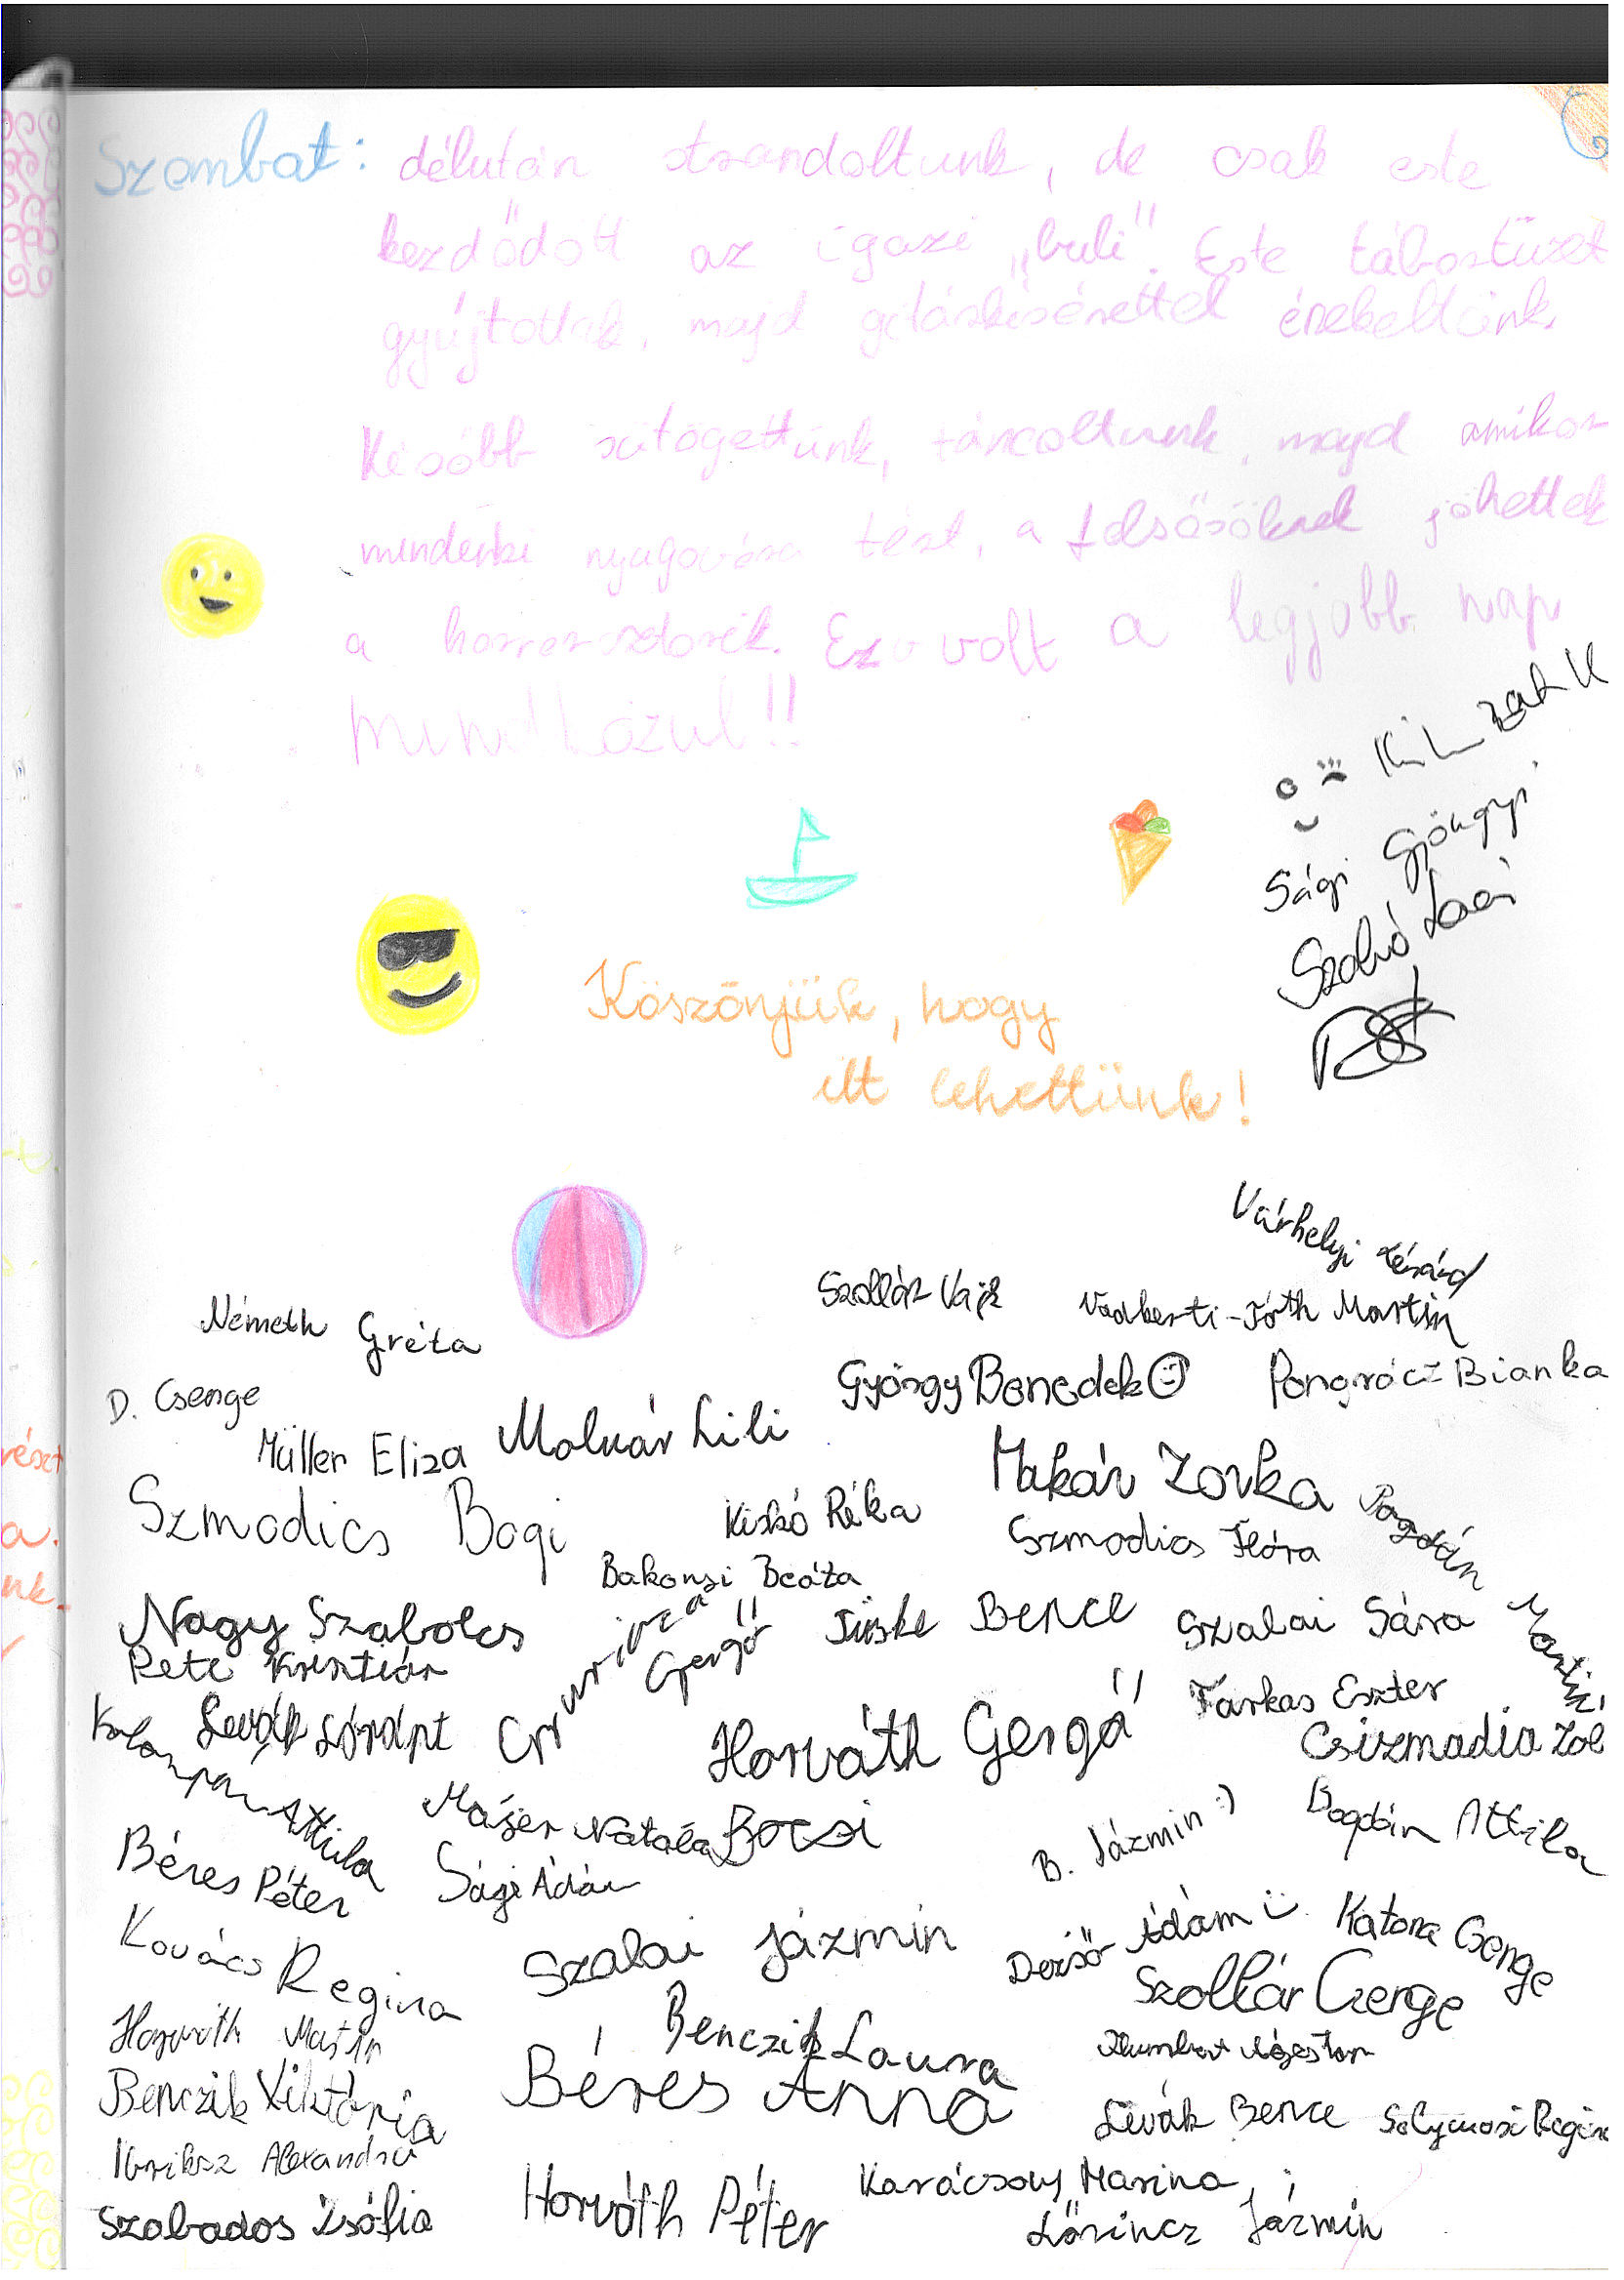 Szombat: délután strandoltunk, de csak este
kezdődött az igazi „buli”. Este tábortüzet
gyújtottak, majd gitárkísérettel énekeltünk.
Később sütögettünk, táncoltunk, majd amikor
mindenki nyugovóra tért, a felsősöknek jöhettek
a horrorsztorik. Ez volt a legjobb nap
mind közül!!
Sági Gyöngyi
Szabó Laci
Köszönjük, hogy
itt lehettünk!
Várhelyi Lénárd
Szollár Vajk
Nadberti-Tóth Martin
Németh Gréta
György Benedek
Pongrácz Bianka
D. Csenge
Müller Eliza
Molnár Lili
Makár Zorka
Szmodics Bogi
Kiskó Réka
Szmodics Flóra
Bogdán Martin
Bakonyi Beáta
Nagy Szabolcs
Gergő
Tüske Bence
Szalai Sára
Pete Krisztián
Farkas Eszter
Levák Lóránt
Horváth Gergő
Csizmadia Zol
Attila
Májer Natália
Bocsi
B. Jázmin :)
Bogdán Attila
Béres Péter
Sági Ádám
Kovács Regina
Szalai Jázmin
Dezső Ádám
Katona Csenge
Szollár Csenge
Horváth Martin
Benczik Laura
Ágoston
Benczik Viktória
Béres Anna
Levák Bence
Solymosi Regin
Ibriksz Alexandra
Karácsony Marina
Szabados Zsófia
Horváth Péter
Lőrincz Jázmin